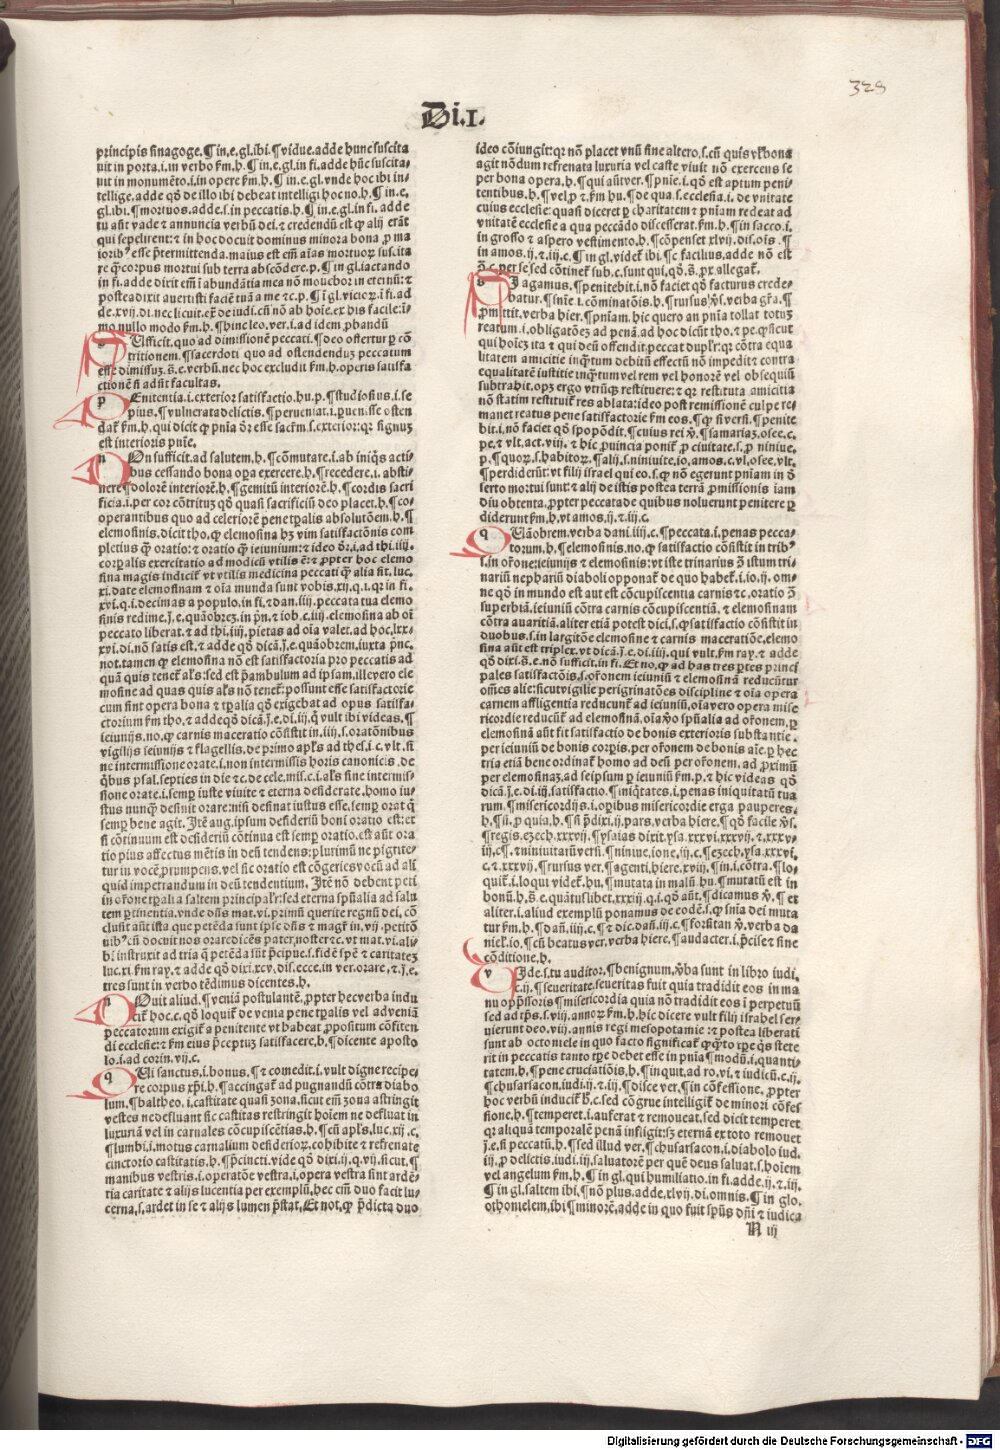 328
Di.I.
principis sinagoge.¶in.e.gl.ibi.¶vidue.adde hunc suscita
uit in porta.i.in verbo ẜm.h.¶in.e.gl.in fi.adde hūc suscita-
uit in monumēto.i.in opere ẜm.h.¶in.e.gl.vnde hoc ibi in-
tellige.adde qd̄ de illo ibi debeat intelligi hoc no.h.¶in.e.
gl.ibi.¶mortuos.adde.s.in peccatis.h.¶in.e.gl.in fi.adde
tu aūt vade ⁊ annuncia verbū dei.⁊ credendū est ꝙ alij erāt
qui sepelirent:⁊ in hoc docuit dominus minora bona ꝓ ma
iorib⁹ esse p̄termittenda.maius est em̄ aīas mortuoꝝ suscita
re ꝙ̄ corpus mortui sub terra abscōdere.p.¶in gl.iactando
in fi.adde dixit em̄ i abundātia mea nō mouebor in eternū:⁊
postea dixit auertisti faciē tuā a me ⁊c.p.¶ī gl.victoꝝ.ī fi.ad
de.xvij.di.nec licuit.er̄ de iudi.cū nō ab hoīe.ex dis facile:ī-
mo nullo modo ẜm.h.¶hinc leo.ver.i.ad idem ꝓbandū
Sufficit.quo ad dimissionē peccati.¶deo offertur ꝑ cō
tritionem.¶sacerdoti quo ad ostendenduꝫ peccatum
esse dimissuꝫ.s̄.e.verbū.nec hoc excludit ẜm.h.operis satisfa
ctionē si adsit facultas.
pEnitentia.i.exterior satisfactio.hu.p.¶studiosius.i.se
pius.¶vulnerata delictis.¶peruēiat.i.ꝑuenisse osten
dat̄ ẜm.h.qui dicit ꝙ pn̄ia ōr esse sacr̄m.s.exterior:qꝛ signuꝫ
est interioris pn̄ie.
nOn sufficit.ad salutem.h.¶cōmutare.i.ab iniq̄s acti
bus cessando bona oꝑa exercere.h.¶recedere.i.absti-
nere¶dolorē interiorē.h.¶gemitū interiorē.h.¶cordis sacri
ficia.i.per cor cōtrituꝫ qd̄ quasi sacrificiū deo placet.h.¶co-
operantibus quo ad celeriorē pene tꝑalis absolutōem.h.¶
elemosinis.dicit tho.ꝙ elemosina hꝫ vim satisfactōnis com
pletius ꝙ̄ oratio:⁊ oratio ꝙ̄ ieiunium:⁊ ideo ōr.i.ad thi.iiij.
corꝑalis exercitatio ad modicū vtilis ē:⁊ ꝓpter hoc elemo
sina magis indicit̄ vt vtilis medicina peccati ꝙ̄ alia sit.luc.
xi.date elemosinam ⁊ oīa munda sunt vobis.xij.q.i.qꝛ in fi.
xvi.q.i.decimas a populo.in fi.⁊ dan.iiij.peccata tua elemo
sinis redime.j̄.e.quāobreꝫ.in pn̄.⁊ iob.c.iiij.elemosina ab oī
peccato liberat.⁊ ad thi.iiij.pietas ad oīa valet.ad hoc.lxx-
xvi.di.nō satis est.⁊ adde qd̄ dicā.j̄.e.quāobrem.iuxta pn̄c.
not.tamen ꝙ elemosina nō est satisfactoria pro peccatis ad
quā quis tenet̄ aľs:sed est p̄ambulum ad ipsam.ille vero ele
mosine ad quas quis aľs nō tenet̄:possunt esse satisfactorie
cum sint opera bona ⁊ tꝑalia qd̄ exigebat ad opus satisfa-
ctorium ẜm tho.⁊ adde qd̄ dicā.j̄.e.di.iij.ꝙ̄ vult ibi videas.¶
ieiunijs.no.ꝙ carnis maceratio cōsistit in.iiij.s.oratōnibus
vigilijs ieiunijs ⁊ flagellis.de primo apľs ad thes.i.c.vlt.si
ne intermissione orate.i.non intermissis horis canonicis.de
q̇bus psal.septies in die ⁊c.de cele.mis.c.i.aľs sine intermis-
sione orate.i.semꝑ iuste viuite ⁊ eterna desiderate.homo iu-
stus nunꝙ̄ desinit orare:nisi desinat iustus esse.semꝑ orat q̄
semꝑ bene agit.Itē aug.ipsum desideriū boni oratio est:et
si cōtinuum est desideriū cōtinua est semꝑ oratio.est aūt ora
tio pius affectus mētis in deū tendens:plurimū ne pigrite-
tur in vocē ꝓrumpens.vel sic oratio est cōgeries vocū ad ali
quid impetrandum in deū tendentium.Itē nō debent peti
in or̄one tꝑalia saltem principaľr:sed eterna spūalia ad salu
tem ꝑtinentia.vnde dn̄s mat.vi.primū querite regnū dei.cō
clusit aūt ista que petēda sunt ipse dn̄s ⁊ magr̄ in.vij.petitō
uib⁹ cū docuit nos orare dicēs pater noster ⁊c.vt mat.vi.ali-
bi instruxit ad tria q̄ petēda sūt p̄cipue.s.fidē spē ⁊ caritateꝫ
luc.xi.ẜm ray.⁊ adde qd̄ dixi.xcv.dis.ecce.in ver.orare.⁊.j̄.e.
tres sunt in verbo tēdimus dicentes.h.
nOuit aliud.¶veniā postulantē.ꝓpter hec verba indu
cit̄ hoc.c.qd̄ loquit̄ de venia pene tꝑalis vel ad veniā
peccatorum exigit̄ a penitente vt habeat ꝓpositum cōfiten
di ecclesie:⁊ ẜm eius p̄ceptuꝫ satisfacere.h.¶dicente aposto
lo.i.ad corin.vij.c.
qUi sanctus.i.bonus.¶⁊ comedit.i.vult digne recipe-
re corpus xp̄i.h.¶accingat̄ ad pugnandū cōtra diabo
lum.¶baltheo.i.castitate quasi zona.sicut em̄ zona astringit
vestes ne defluant sic castitas restringit hoīem ne defluat in
luxuriā vel in carnales cōcupiscētias.h.¶cū apľs.luc.xij.c.
¶lumbi.i.motus carnalium desiderioꝝ.cohibite ⁊ refrenate
cinctorio castitatis.h.¶p̄cincti.vide qd̄ dixi.ij.q.vij.sicut.¶
manibus vestris.i.operatōe vestra.i.opera vestra sint ardē-
tia caritate ⁊ alijs lucentia per exemplū.hec em̄ duo facit lu-
cerna.s.ardet in se ⁊ alijs lumen p̄stat.Et not.ꝙ p̄dicta duo
ideo cōiungit:qꝛ nō placet vnū sine altero.s.cū quis vľ bona
agit nōdum refrenata luxuria vel caste viuit nō exercens se
per bona opera.h.¶qui aūt ver.¶pn̄ie.i.qd̄ est aptum peni-
tentibus.h.¶vel ꝓ ⁊ ẜm hu.¶de qua.s.ecclesia.i.de vnitate
cuius ecclesie:quasi diceret ꝑ charitatem ⁊ pn̄iam redeat ad
vnitatē ecclesie a qua peccādo discesserat.ẜm.h.¶in sacco.i.
in grosso ⁊ aspero vestimento.h.¶cōpenset.xlvij.dis.oīs.¶
in amos.ij.⁊.iij.c.¶in gl.videt̄ ibi.¶c facilius.adde nō est
ꝯ̄.c.per se sed cōtinet̄ sub.c.sunt qui.qd̄.s̄.ꝓx.allegat̄.
SI agamus.¶penitebit.i.nō faciet qd̄ facturus crede-
batur.¶sn̄iē.i.cōminatōis.h.¶rursus v̓s.verba gr̄a.¶
ꝓmittit.verba hier.¶pn̄iam.hic quero an pn̄ia tollat totuꝫ
reatum.i.obligatōeꝫ ad penā.ad hoc dicūt tho.⁊ pe.ꝙ sicut
qui hoīeꝫ ita ⁊ qui deū offendit.peccat dupľr:qꝛ cōtra equa
litatem amicitie inꝙ̄tum debitū effectū nō impedit ⁊ contra
equalitatē iustitie inꝙ̄tum vel rem vel honorē vel obsequiū
subtrahit.opꝫ ergo vtrūꝗ restituere:⁊ qꝛ restituta amicitia
nō statim restituit̄ res ablata:ideo post remissionē culpe re-
manet reatus pene satisfactorie ẜm eos.¶ꝙ si versi.¶penite
bit.i.nō faciet qd̄ spopōdit.¶cuius rei v̓.¶samariaꝫ.osee.c.
pe.⁊ vlt.act.viij.⁊ hic ꝓuincia ponit̄ ꝓ ciuitate.s.ꝓ niniue.
p.¶quoꝝ.s.habitoꝝ.¶alij.s.niniuite.io.amos.c.vľ.osee.vlt.
¶perdiderūt:vt filij israel qui eo.s.ꝙ nō egerunt pn̄iam in d̓
serto mortui sunt:⁊ alij de istis postea terrā ꝓmissionis iam
diu obtenta.ꝓpter peccata de quibus noluerunt penitere ꝑ
diderunt ẜm.h.vt amos.ij.⁊.iij.c.
qUāobrem.verba dani.iiij.c.¶peccata.i.penas pecca-
torum.h.¶elemosinis.no.ꝙ satisfactio cōsistit in trib⁹
s.in or̄one:ieiunijs ⁊ elemosinis:vt iste trinarius ꝯ̄ istum tri-
nariū nephariū diaboli opponat̄ de quo habet̄.i.io.ij.om-
ne qd̄ in mundo est aut est cōcupiscentia carnis ⁊c.oratio ꝯ̄
superbiā.ieiuniū cōtra carnis cōcupiscentiā.⁊ elemosinam
cōtra auaritiā.aliter etiā potest dici.s.ꝙ satisfactio cōsistit in
duobus.s.in largitōe elemosine ⁊ carnis maceratiōe.elemo
sina aūt est triplex.vt dicā.j̄.e.di.iiij.qui vult.ẜm ray.⁊ adde
qd̄ dixi.s̄.e.nō sufficit.in fi.Et no.ꝙ ad has tres ꝑtes princi
pales satisfactōis.s.or̄onem ieiuniū ⁊ elemosinā reducūtur
om̄es alie:sicut vigilie perigrinatōes discipline ⁊ oīa opera
carnem affligentia reducunt̄ ad ieiuniū.oīa vero opera mise
ricordie reducūt̄ ad elemosinā.oīa v̓o spūalia ad or̄onem.ꝑ
elemosinā aūt fit satisfactio de bonis exterioris substantie.
per ieiuniū de bonis corꝑis.per or̄onem de bonis aīe.ꝑ hec
tria etiā bene ordinat̄ homo ad deū per or̄onem.ad ꝓximū
per elemosinaꝫ.ad seipsum ꝑ ieiuniū ẜm.p.⁊ hic videas qd̄
dicā.j̄.e.di.iij.satisfactio.¶iniq̇tates.i.penas iniquitatū tua
rum.¶misericordijs.i.oꝑibus misericordie erga pauperes.
h.¶si.ꝓ quia.h.¶si p̄dixi.ij.pars.verba hiere.¶qd̄ facile v̓s.
¶regis.eꝫech.xxxvij.¶ysaias dixit.ysa.xxxvi.xxxvij.⁊.xxxv-
iij.c.¶⁊ niniuitarū versi.¶niniue.ione.iij.c.¶eꝫech.ysa.xxxvi.
c.⁊.xxxvij.¶rursus ver.¶agenti.hiere.xviij.¶in.i.cōtra.¶lo-
quit̄.i.loqui videt̄.hu.¶mutata in malū.hu.¶mutatū est in
bonū.h.s̄.e.quātuslibet.xxxij.q.i.qd̄ aūt.¶dicamus v̓.¶et
aliter.i.aliud exemplū ponamus de eodē.s.ꝙ sn̄ia dei muta
tur ẜm.h.¶dan̄.iiij.c.¶⁊ dic.dan̄.iij.c.¶forsitan v̓.verba da
nieľ.io.¶cū beatus ver.verba hiere.¶audacter.i.p̄cise ⁊ sine
cōditione.h.
vIde.s.tu auditor.¶benignum.v̓ba sunt in libro iudi.
c.ij.¶seueritate.seueritas fuit quia tradidit eos in ma
nu opp̄ssoris ¶misericordia quia nō tradidit eos ī perpetuū
sed ad tp̄s.s.vij.annoꝝ ẜm.h.hic dicere vult filij israhel ser-
uierunt deo.viij.annis regi mesopotamie:⁊ postea liberati
sunt ab octoniele in quo facto significat̄ ꝙ ꝙ̄to tꝑe q̇s stete
rit in peccatis tanto tꝑe debet esse in pn̄ia ¶modū.i.quanti-
tatem.h.¶pene cruciatiōis.h.¶inquit.ad ro.vi.⁊ iudicū.c.ij.
¶chusarsacon.iudi.ij.⁊.iij.¶disce ver.¶in cōfessione.ꝓpter
hoc verbū inducit̄ h̓.c.sed cōgrue intelligit̄ de minori cōfes
sione.h.¶temperet.i.auferat ⁊ remoueat.sed dicit temperet
qꝛ aliquā temporalē penā infligit:sꝫ eternā ex toto remouet
j̄.e.si peccatū.h.¶sed illud ver.¶chusarsacon.i.diabolo iud.
iij.ꝓ delictis.iudi.iij.saluatorē per quē deus saluat.s.hoīem
vel angelum ẜm.h.¶in gl.qui humiliatio.in fi.adde.ij.⁊.iij.
¶in gl.saltem ibi.¶nō plus.adde.xlvij.di.omnis.¶in glo.
othonielem.ibi ¶minorē.adde in quo fuit spūs dn̄i ⁊ iudica
N iij
Digitalisierung gefördert durch die Deutsche Forschungsgemeinschaft - DFG